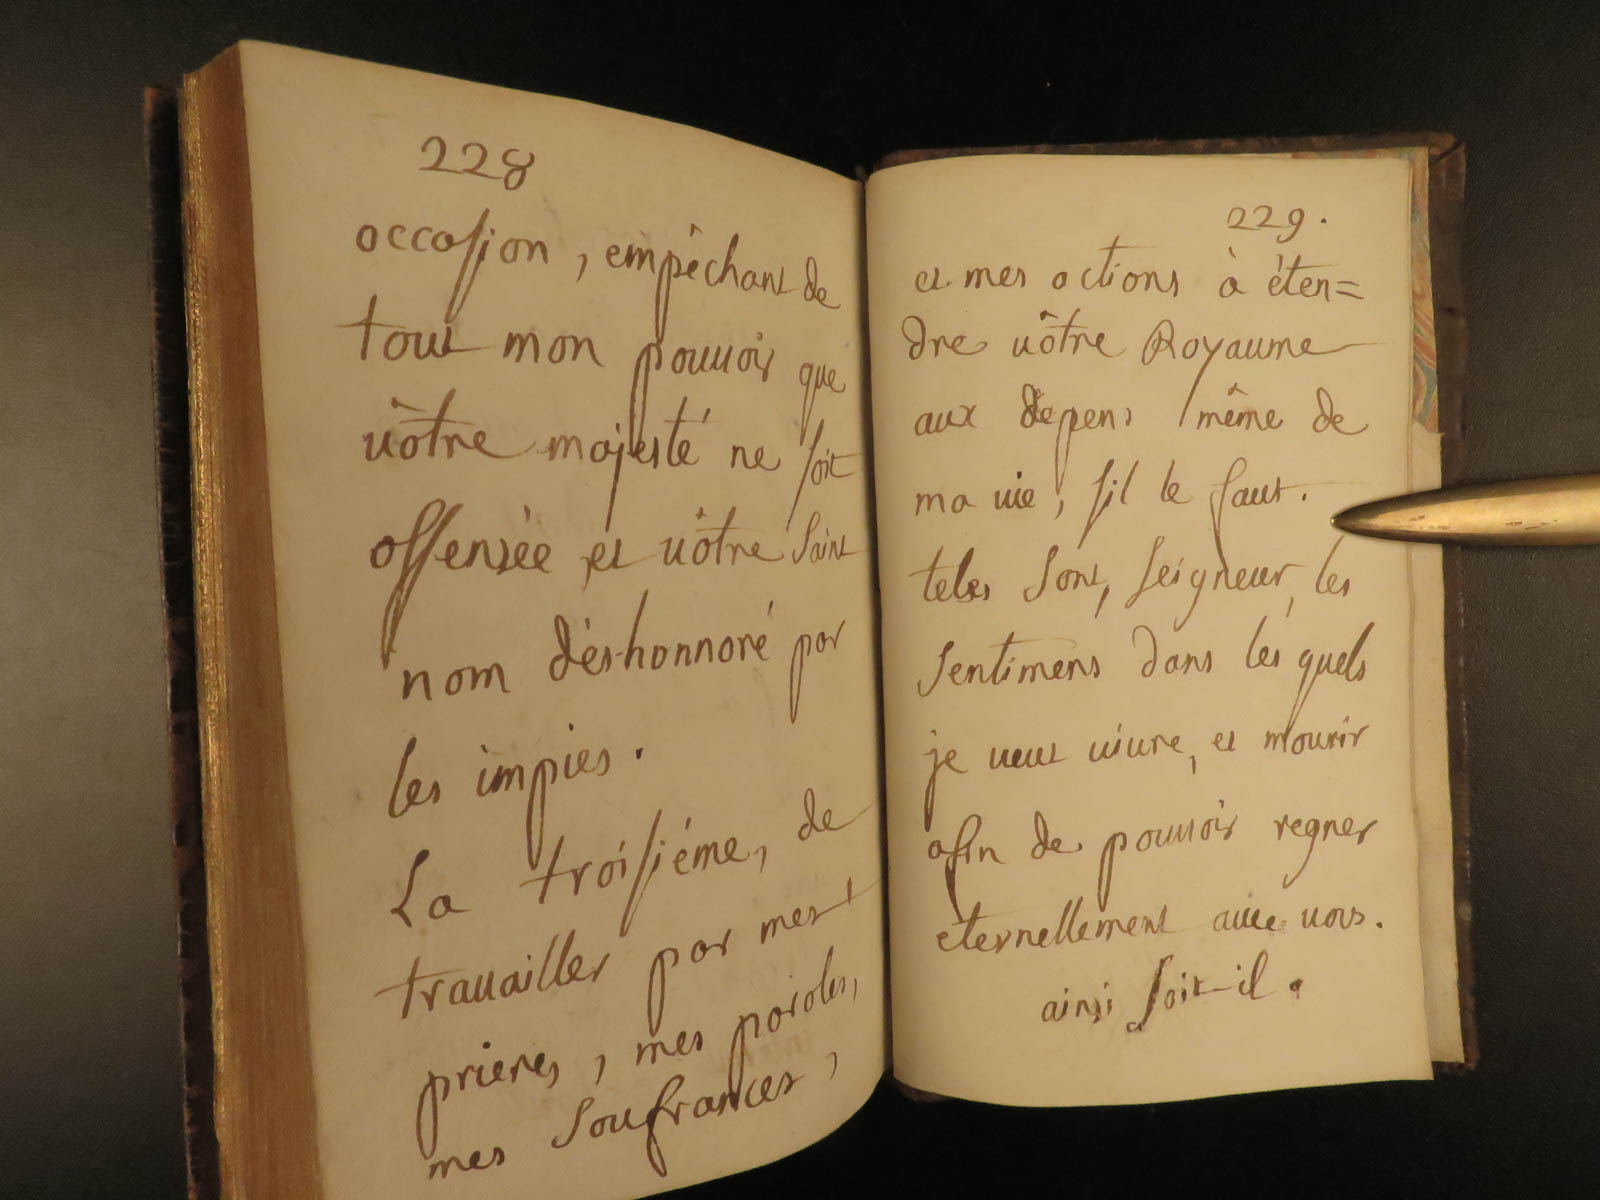 228
occasion, empêchant de
tout mon pouuoir que
uôtre majesté ne soit
offensée et uôtre saint
nom dés-honnoré par
les impies.
La troisiéme, de
trauailler par mes
prieres, mes paroles,
mes soufrances,
229.
et mes actions à éten=
dre uôtre Royaume
aux depens même de
ma uie, s'il le faut.
teles sont, seigneur, les
sentimens dans lés quels
je ueut uiure, et mourir
afin de pouuoir regner
eternellement auec uous.
ainsi soit-il.